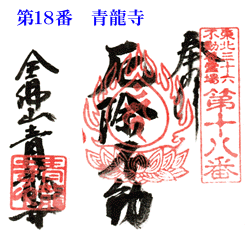 第18番 青龍寺
奉拝
東北三十六
不動尊霊場
第十八番
厄除不動
金剛山青龍寺